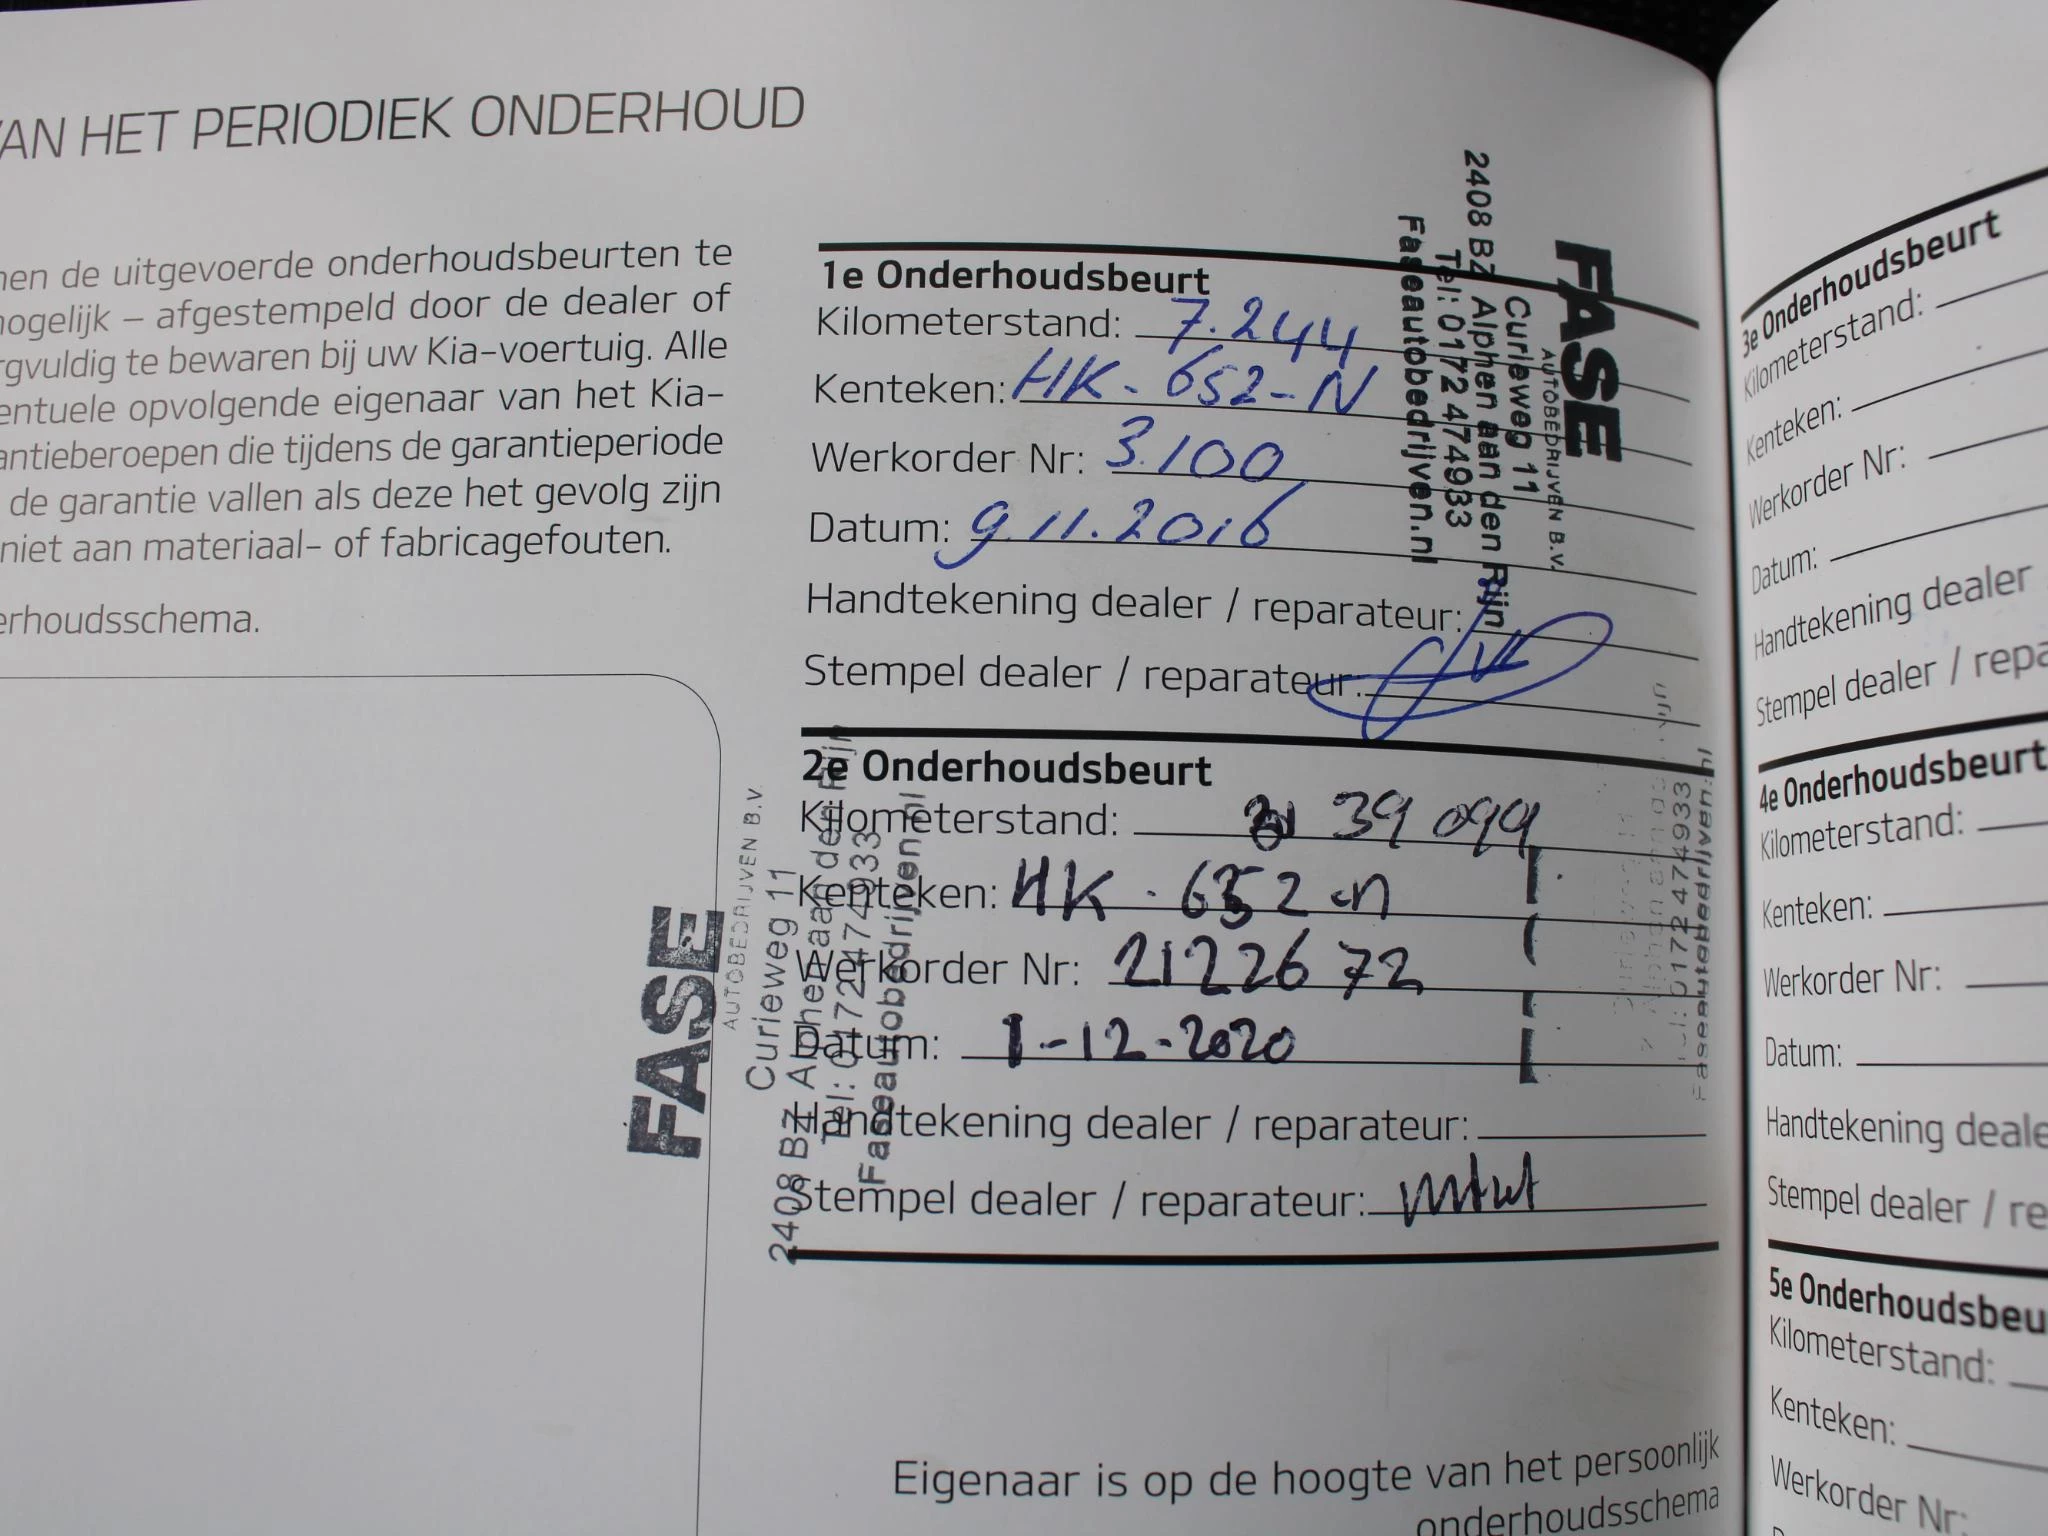 VAN HET PERIODIEK ONDERHOUD
de uitgevoerde onderhoudsbeurten te
mogelijk – afgestempeld door de dealer of
te bewaren bij uw Kia-voertuig. Alle
opvolgende eigenaar van het Kia-
die tijdens de garantieperiode
de garantie vallen als deze het gevolg zijn
niet aan materiaal- of fabricagefouten.
1e Onderhoudsbeurt
Kilometerstand: 7.244
Kenteken: HK-652-N
Werkorder Nr: 3.100
Datum: 9.11.2016
Handtekening dealer / reparateur:
Stempel dealer / reparateur:
FASE
AUTOBEDRIJVEN B.V.
Curieweg 11
2408 BZ Alphen aan den Rijn
Tel: 0172 474933
Faseautobedrijven.nl
2e Onderhoudsbeurt
Kilometerstand: 39 099
Kenteken: HK-652-n
Werkorder Nr: 2122672
Datum: 1-12-2020
Handtekening dealer / reparateur:
Stempel dealer / reparateur:
FASE
AUTOBEDRIJVEN B.V.
Curieweg 11
2408 BZ Alphen aan den Rijn
Tel: 0172 474933
Faseautobedrijven.nl
0172 474933
Eigenaar is op de hoogte van het persoonlijk
onderhoudsschema
3e Onderhoudsbeurt
Kilometerstand:
Kenteken:
Werkorder Nr:
Datum:
Handtekening dealer
Stempel dealer /
4e Onderhoudsbeurt
Kilometerstand:
Kenteken:
Werkorder Nr:
Datum:
Handtekening
Stempel dealer /
5e
Kilometerstand:
Kenteken:
Werkorder Nr: